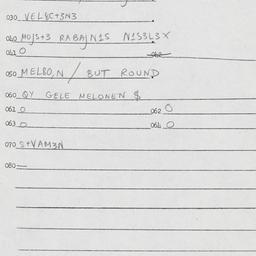 030 VEL&C+3N3
040 MOJS+3 RABAJN1S N1S3L3X
041 O 042
050 MELBO,N / BUT ROUND
060 QY GELE MELONEN $
061 O 062 O
063 O 064 O
070 S+VAM3N
080 —